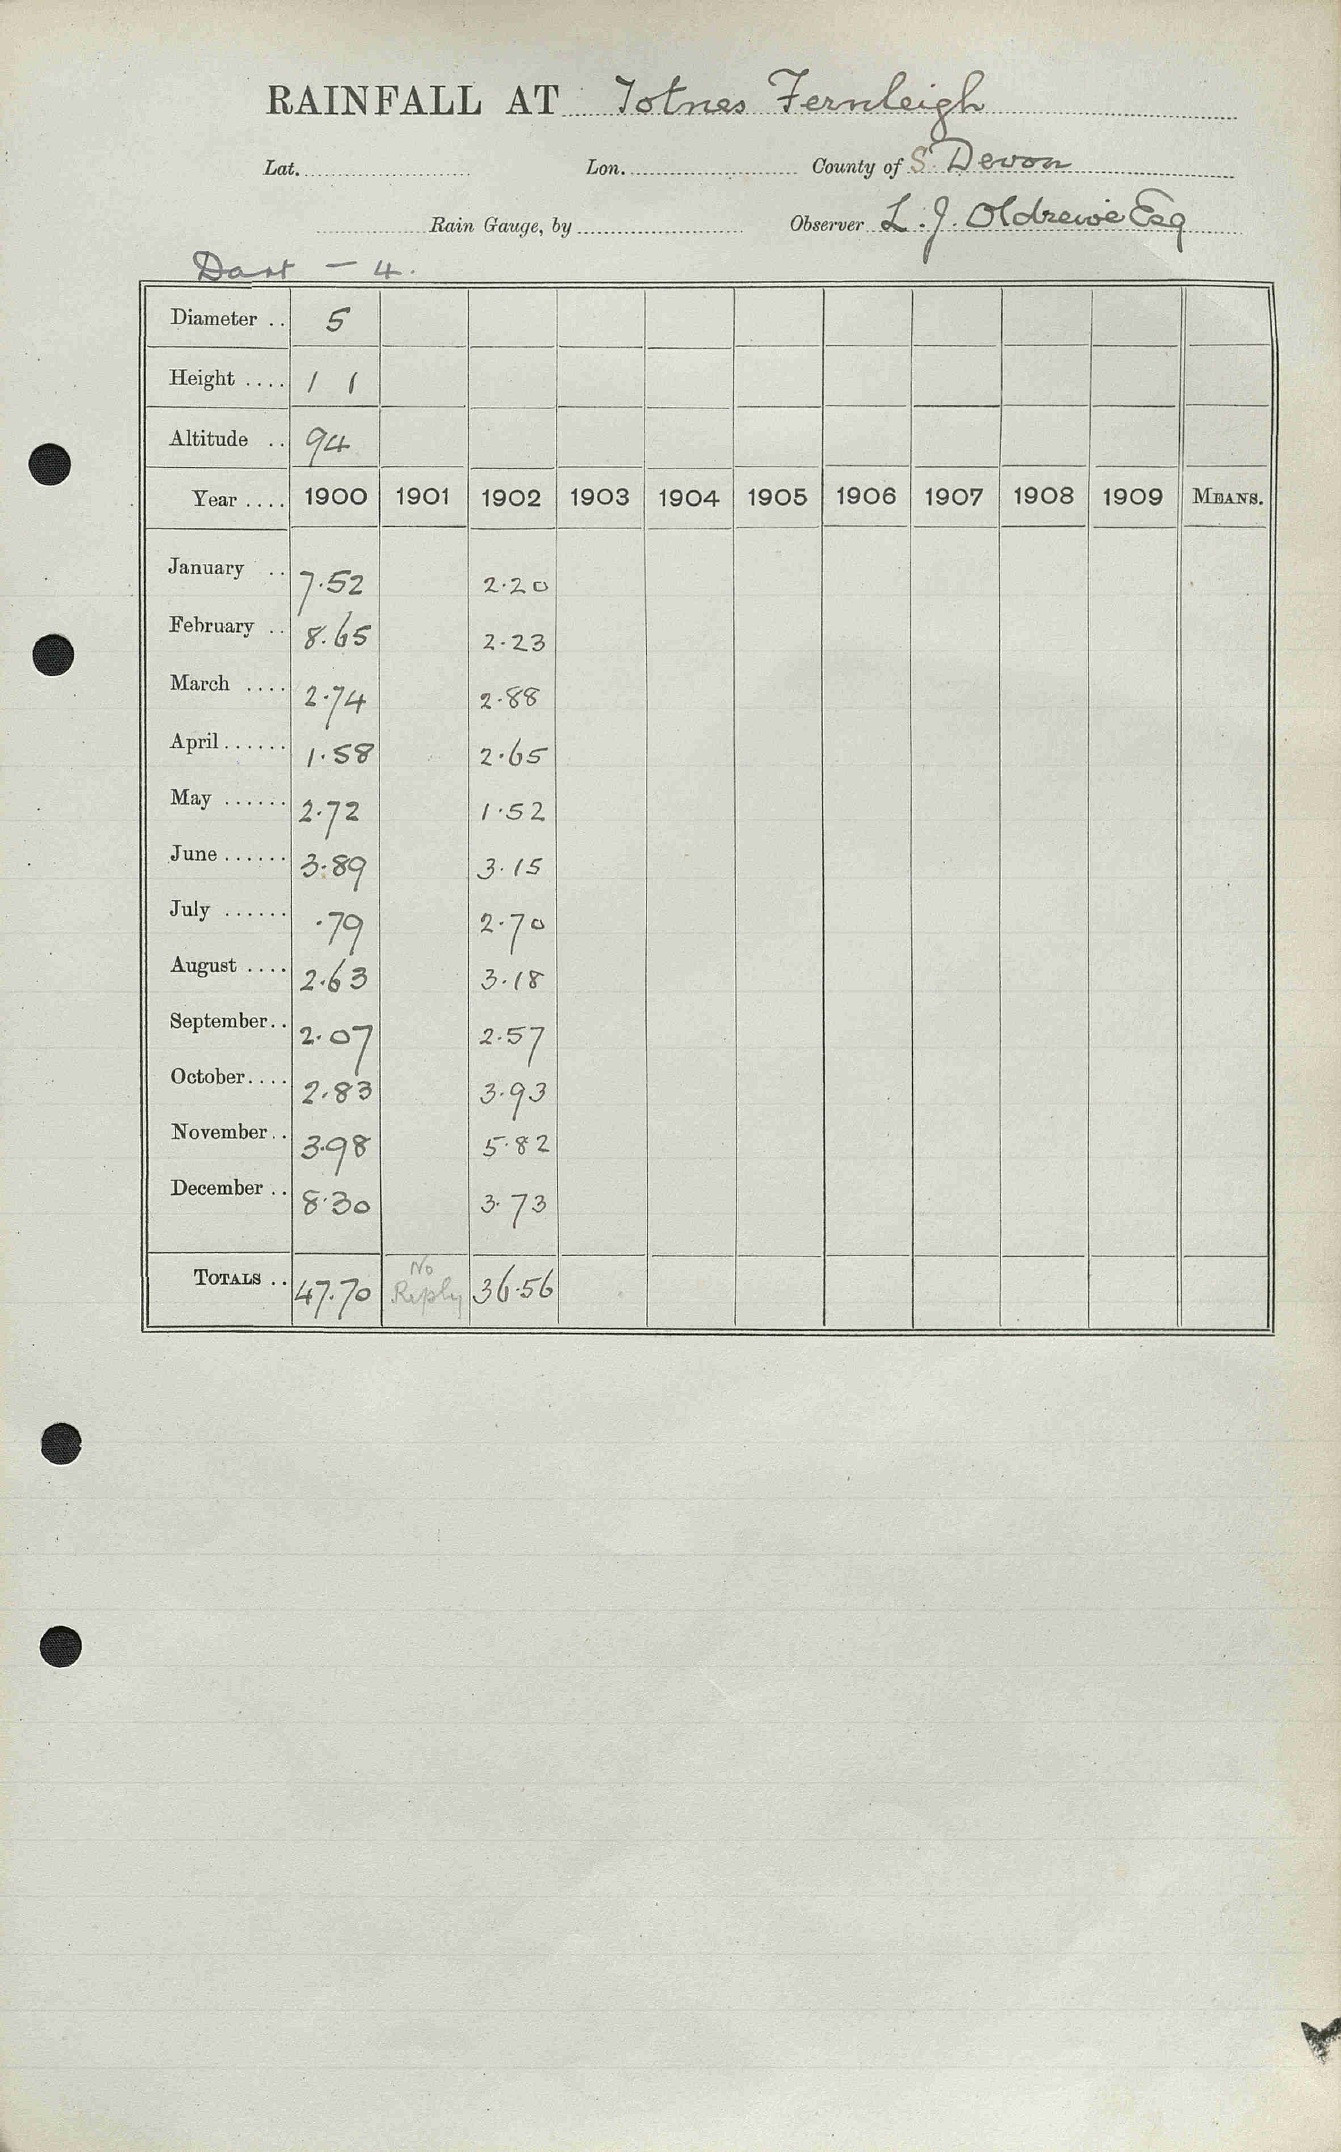 RAINFALL AT Totnes Fernleigh
Lat. Lon. County of S. Devon
Rain Gauge, by Observer L. J. Oldreive Esq
Dart - 4.
Diameter .. 5
Height .... 1 1
Altitude .. 94
Year .... 1900 1901 1902 1903 1904 1905 1906 1907 1908 1909 MEANS.
January .. 7.52 2.20
February .. 8.65 2.23
March .... 2.74 2.88
April ...... 1.58 2.65
May ...... 2.72 1.52
June ...... 3.89 3.15
July ...... .79 2.70
August .... 2.63 3.18
September.. 2.07 2.57
October.... 2.83 3.93
November.. 3.98 5.82
December .. 8.30 3.73
TOTALS .. 47.70 No Reply 36.56